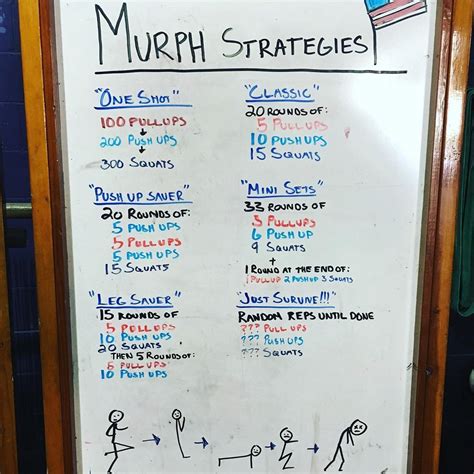 MURPH STRATEGIES
"ONE SHOT"
100 PULLUPS
200 PUSH UPS
300 SQUATS
"CLASSIC"
20 ROUNDS OF:
5 PULLUPS
10 PUSH UPS
15 SQUATS
"PUSH UP SAVER"
20 ROUNDS OF:
5 PUSH UPS
5 PULLUPS
5 PUSH UPS
15 SQUATS
"MINI SETS"
33 ROUNDS OF
3 PULLUPS
6 PUSH UP
9 SQUATS
+
1 ROUND AT THE END OF:
1 PULL UP 2 PUSH UP 3 SQUATS
"LEG SAVER"
15 ROUNDS OF
5 PULL UPS
10 PUSH UPS
20 SQUATS
THEN 5 ROUNDS OF:
5 PULL UPS
10 PUSH UPS
"JUST SURVIVE!!!"
RANDOM REPS UNTIL DONE
??? PULL UPS
??? PUSH UPS
??? SQUATS